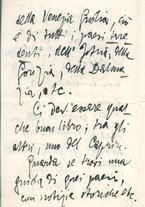 della Venezia Giulia, cioè
di tutti i paesi irre
denti, dell'Istria, della
Gorizia, della Dalma
zia, etc.
Ci dev'essere qual
che buon libro; tra gli
altri, uno del Caprin.
Guarda se trovi una
guida di quei paesi,
con notizie storiche etc.